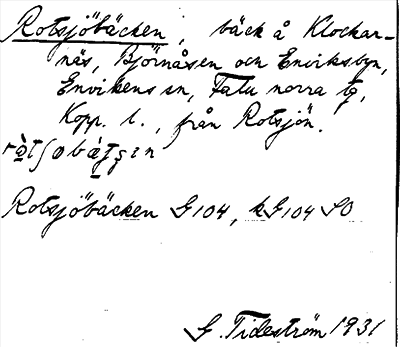 Rotsjöbäcken, bäck å Klockar-
näs, Björnåsen och Enviksbyn,
Envikens sn, Falu norra tg,
Kopp. l., från Rotsjön.
Rotsjöbäcken G104, kG104 SO
G. Tideström 1931